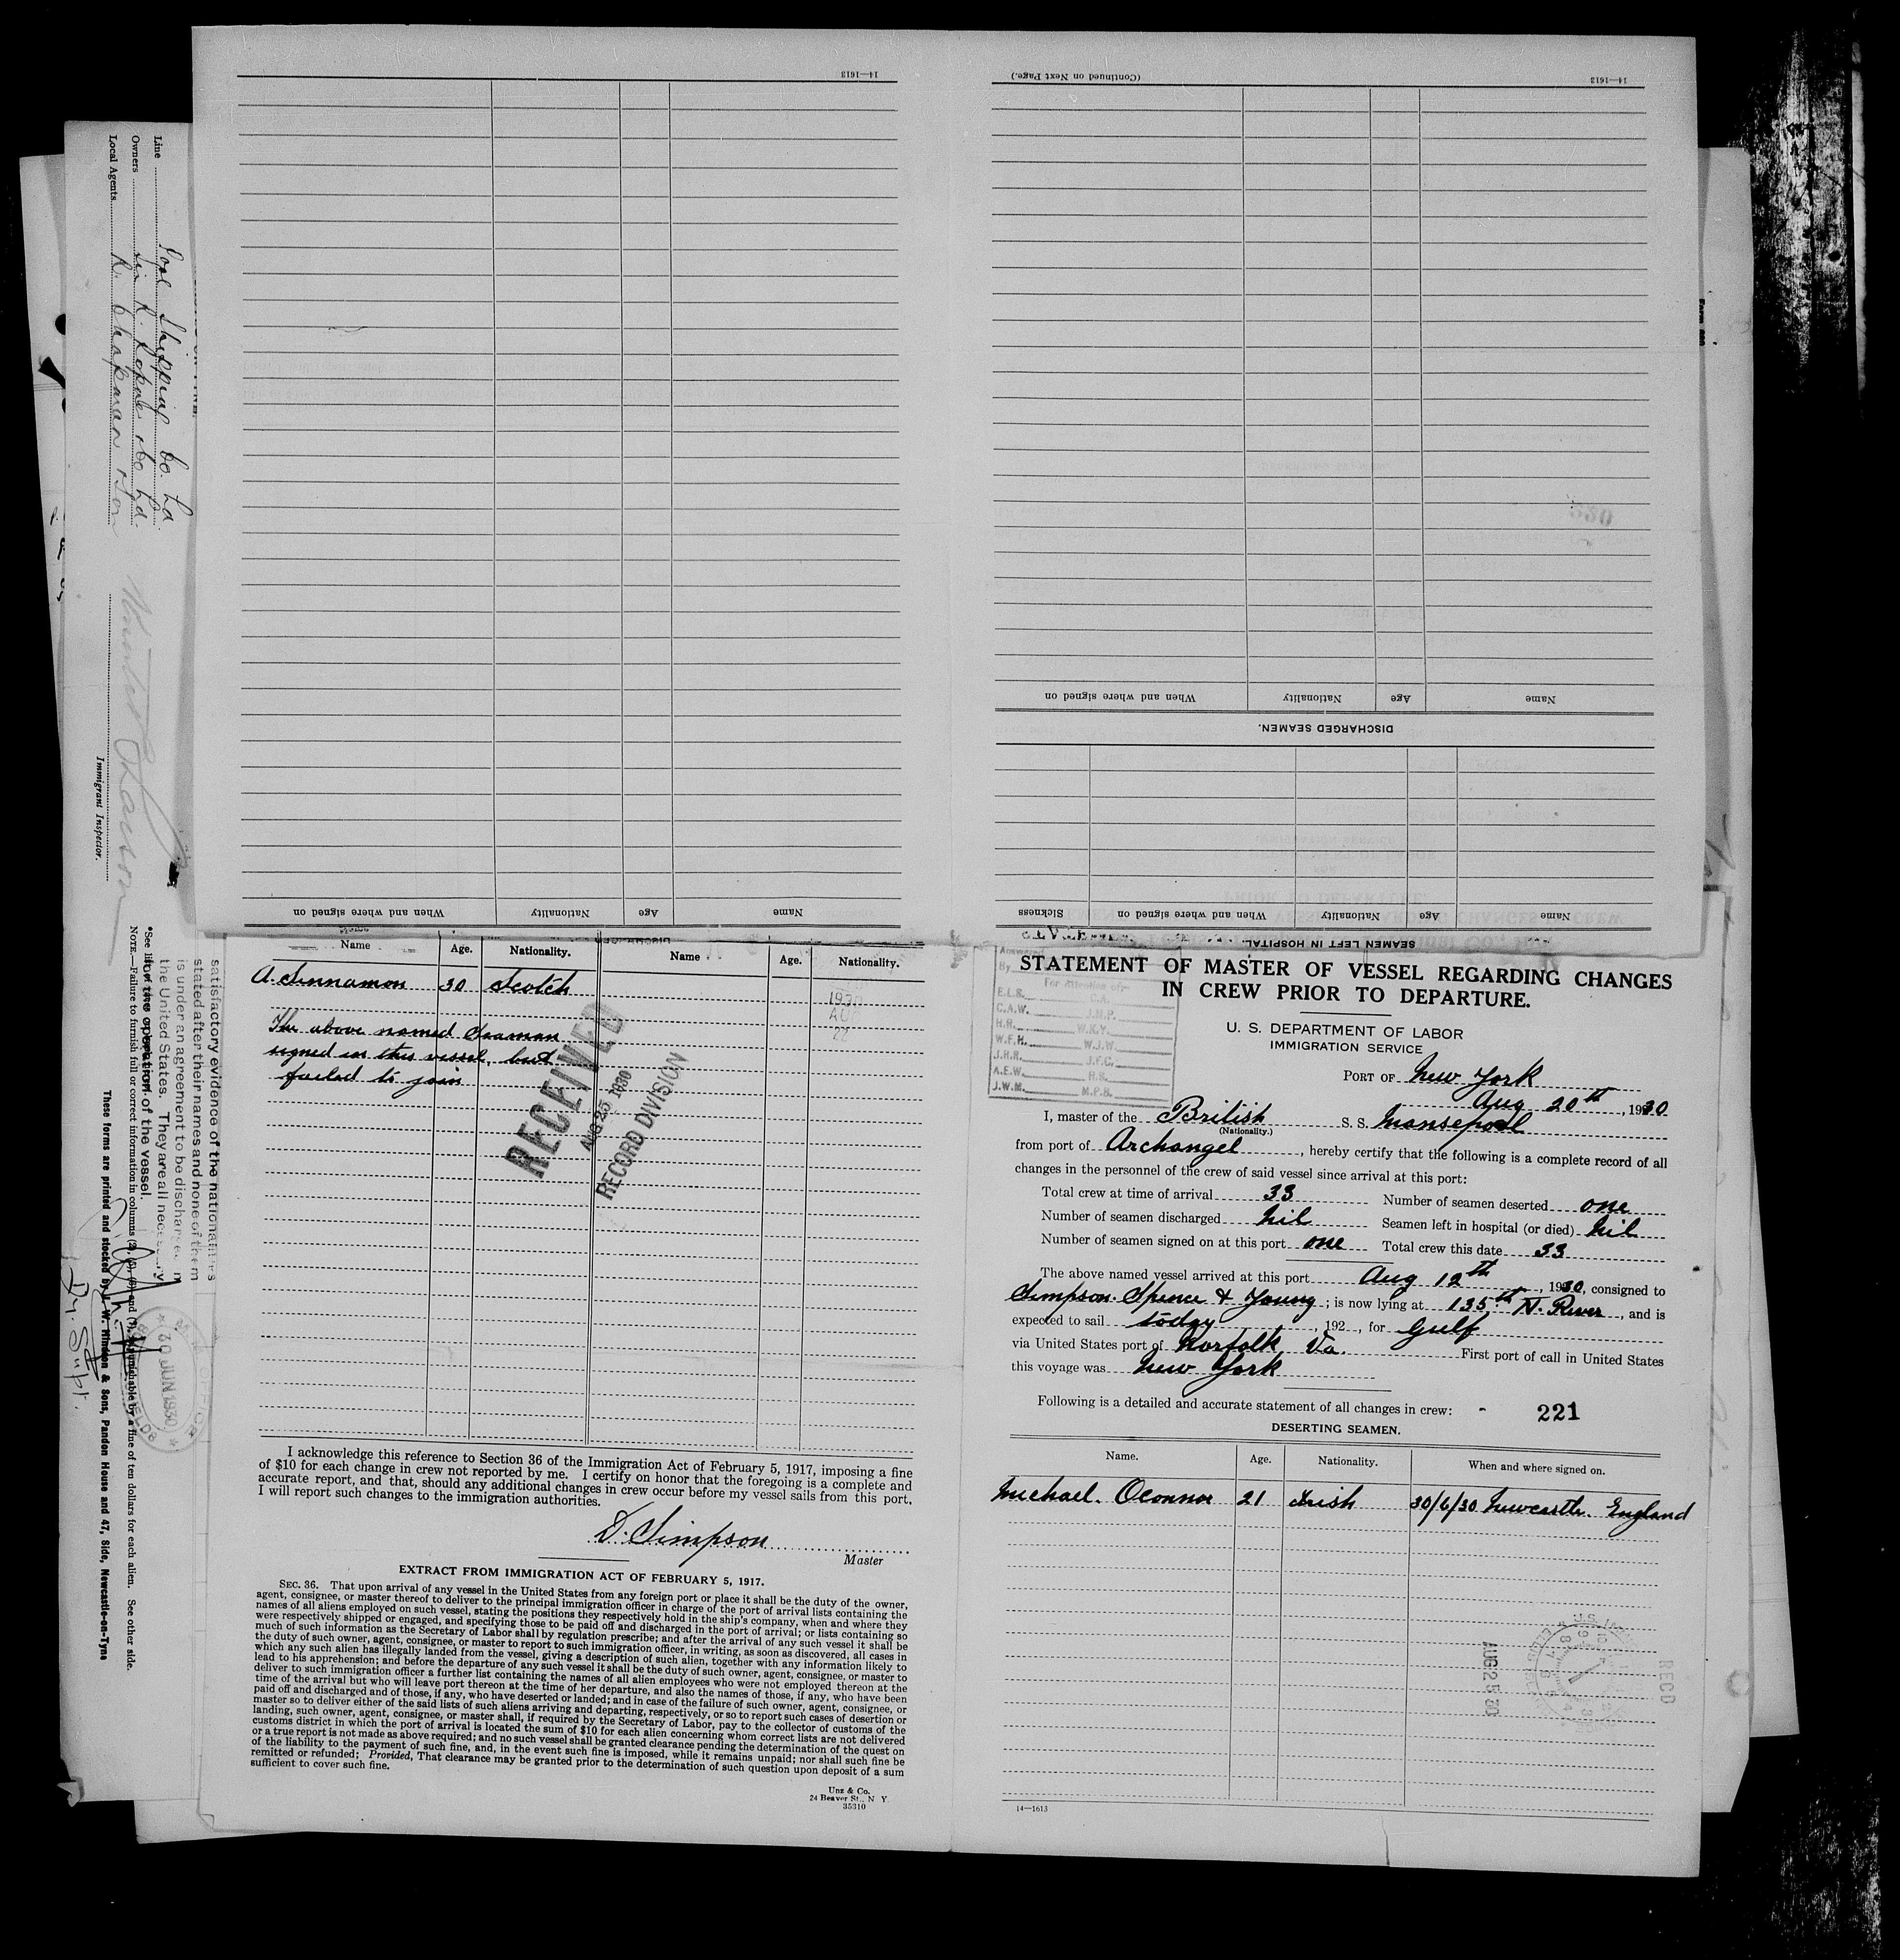 14—1613
(Continued on Next Page.)
14—1613
Name
Age
Nationality
When and where signed on
DISCHARGED SEAMEN.
Name
Age
Nationality
When and where signed on
Name
Age
Nationality
When and where signed on
Sickness
SEAMEN LEFT IN HOSPITAL.
Line
Pool Shipping Co. Ld
Owners
Sir R. Ropner & Co Ld.
Local Agents
R. Chapman & Son
Immigrant Inspector.
satisfactory evidence of the nationalities
stated after their names and none of them
is under an agreement to be discharged in
the United States. They are all necessary
for the operation of the vessel.
NOTE.—Failure to furnish full or correct information in columns (2), (5), (6) and (7) is punishable by a fine of ten dollars for each alien. See other side.
These forms are printed and stocked by J. W. Hindson & Sons, Pandon House and 47, Side, Newcastle-on-Tyne
30 JUN 1930
Dy. Supt.
Name
Age.
Nationality.
Name
Age.
Nationality.
A. Sinnamon 30 Scotch
The above named Seaman
signed in this vessel, but
failed to join
1930
AUG
22
RECEIVED
AUG 25 1930
RECORD DIVISION
I acknowledge this reference to Section 36 of the Immigration Act of February 5, 1917, imposing a fine
of $10 for each change in crew not reported by me. I certify on honor that the foregoing is a complete and
accurate report, and that, should any additional changes in crew occur before my vessel sails from this port,
I will report such changes to the immigration authorities.
D. Simpson
Master
EXTRACT FROM IMMIGRATION ACT OF FEBRUARY 5, 1917.
SEC. 36. That upon arrival of any vessel in the United States from any foreign port or place it shall be the duty of the owner,
agent, consignee, or master thereof to deliver to the principal immigration officer in charge of the port of arrival lists containing the
names of all aliens employed on such vessel, stating the positions they respectively hold in the ship's company, when and where they
were respectively shipped or engaged, and specifying those to be paid off and discharged in the port of arrival; or lists containing so
much of such information as the Secretary of Labor shall by regulation prescribe; and after the arrival of any such vessel it shall be
the duty of such owner, agent, consignee, or master to report to such immigration officer, in writing, as soon as discovered, all cases in
which any such alien has illegally landed from the vessel, giving a description of such alien, together with any information likely to
lead to his apprehension; and before the departure of any such vessel it shall be the duty of such owner, agent, consignee, or master to
deliver to such immigration officer a further list containing the names of all alien employees who were not employed thereon at the
time of the arrival but who will leave port thereon at the time of her departure, and also the names of those, if any, who have been
paid off and discharged and of those, if any, who have deserted or landed; and in case of the failure of such owner, agent, consignee, or
master so to deliver either of the said lists of such aliens arriving and departing, respectively, or so to report such cases of desertion or
landing, such owner, agent, consignee, or master shall, if required by the Secretary of Labor, pay to the collector of customs of the
customs district in which the port of arrival is located the sum of $10 for each alien concerning whom correct lists are not delivered
or a true report is not made as above required; and no such vessel shall be granted clearance pending the determination of the quest on
of the liability to the payment of such fine, and, in the event such fine is imposed, while it remains unpaid; nor shall such fine be
remitted or refunded; Provided, That clearance may be granted prior to the determination of such question upon deposit of a sum
sufficient to cover such fine.
Unz & Co.
24 Beaver St., N Y
35310
STATEMENT OF MASTER OF VESSEL REGARDING CHANGES
IN CREW PRIOR TO DEPARTURE.
By
For Attention of:-
E.L.R. C.A.
C.A.W. J.N.P.
H.R. W.K.Y.
W.F.H. W.J.W.
J.H.R. J.F.C.
A.E.W. H.S.
J.W.M. M.P.B.
U. S. DEPARTMENT OF LABOR
IMMIGRATION SERVICE
PORT OF New York
Aug 20th, 1930
I, master of the British S. S. Mansepool
(Nationality.)
from port of Archangel, hereby certify that the following is a complete record of all
changes in the personnel of the crew of said vessel since arrival at this port:
Total crew at time of arrival 33 Number of seamen deserted one
Number of seamen discharged nil Seamen left in hospital (or died) nil
Number of seamen signed on at this port one Total crew this date 33
The above named vessel arrived at this port Aug 12th, 1930, consigned to
Simpson. Spence & Young; is now lying at 135th N. River, and is
expected to sail today, 192 , for Gulf
via United States port of Norfolk Va. First port of call in United States
this voyage was New York
Following is a detailed and accurate statement of all changes in crew: - 221
DESERTING SEAMEN.
Name.
Age.
Nationality.
When and where signed on.
Michael. Oconnor 21 Irish 30/6/30 Newcastle. England
AUG 25 30
RECD
14—1613